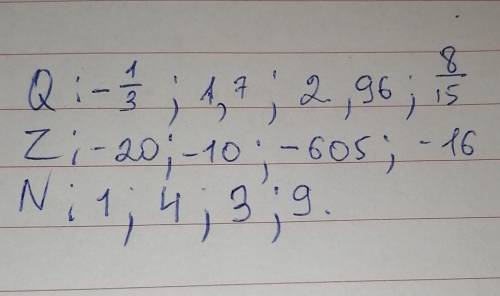 Q : -1/3 ; 1,7 ; 2,96 ; 8/15
Z ; -20 ; -10 ; -605 ; -16
N ; 1 ; 4 ; 3 ; 9.